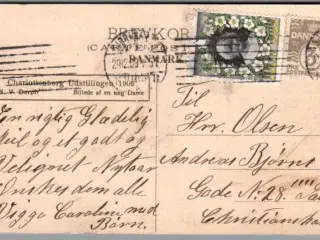 BREVKORT
(CARTE POSTALE)
DANMARK
Charlottenborg Udstillingen 1906
N. V. Dorph Billede af en ung Dame
En rigtig Glædelig
Jul og et godt og
Velsignet Nytaar
Ønskes dem alle
Viggo Caroline med
Børn.
Til
Hrr. Olsen
Andreas Bjørns
Gade No. 28
Christiansha